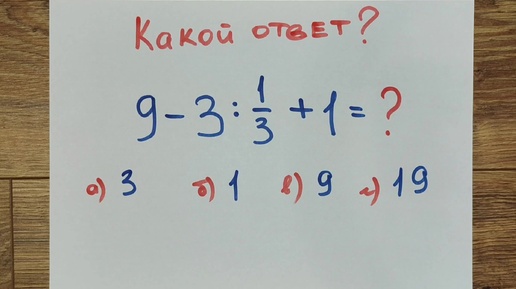 Какой ответ?
9 - 3 : 1/3 + 1 = ?
а) 3 б) 1 в) 9 г) 19